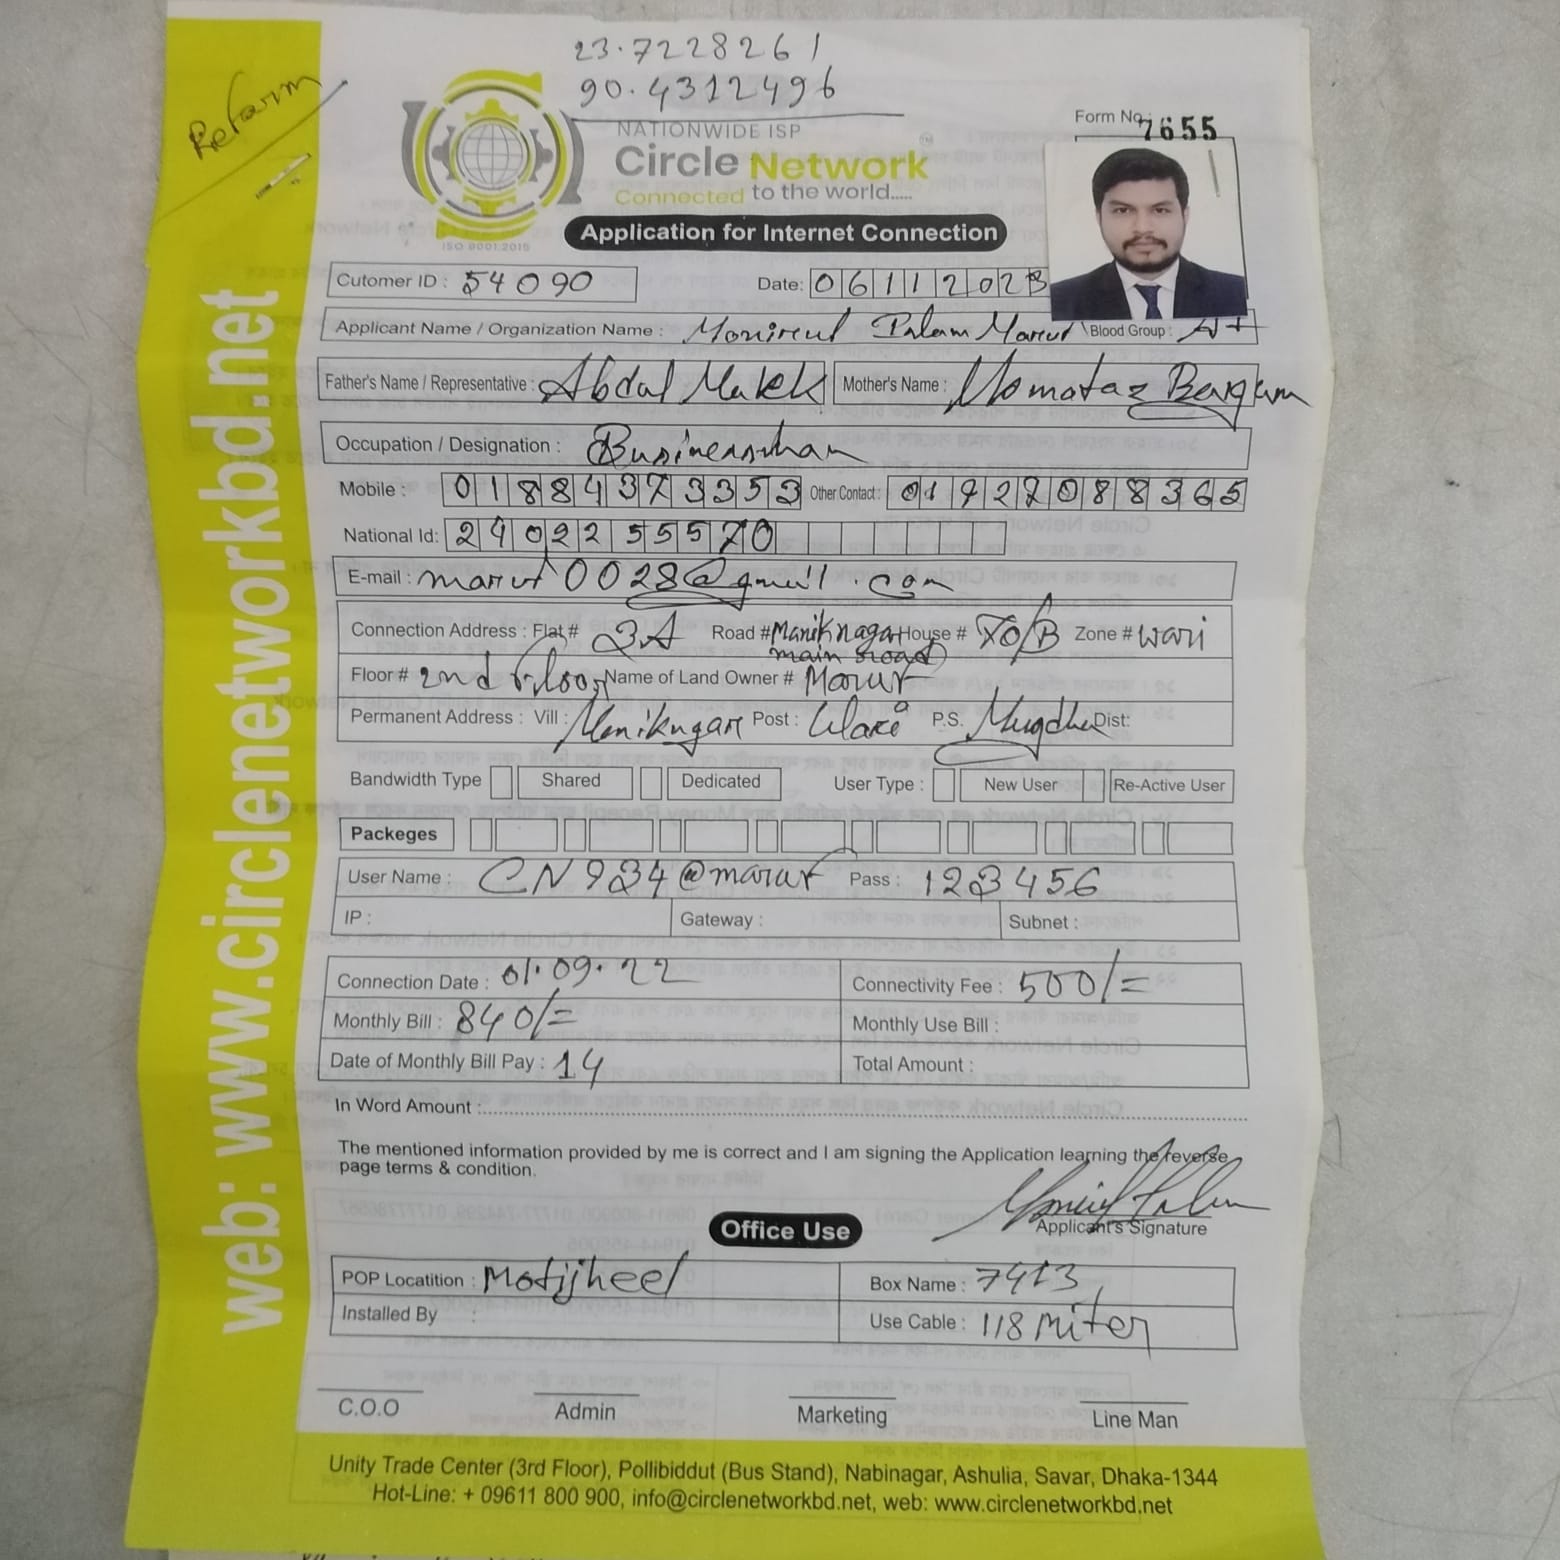 23.7228261
90.4312496
Reform
NATIONWIDE ISP
Form No: 7655
Circle Network
Connected to the world.....
ISO 9001:2015
Application for Internet Connection
Cutomer ID : 54090 Date: 06112023
Applicant Name / Organization Name : Blood Group : A+
Father's Name / Representative : Abdul Malek Mother's Name : Momataz Bengam
Occupation / Designation : Businessman
Mobile : 01884373353 Other Contact : 01922088365
National Id: 2402255570
E-mail : maruf0028@gmail.com
Connection Address : Flat # 3A Road # Maniknagar House # 70/B Zone # wari
main road
Floor # 2nd floor Name of Land Owner # Maruf
Permanent Address : Vill : Maniknagar Post : Wari P.S. Mugdha Dist:
Bandwidth Type Shared Dedicated User Type : New User Re-Active User
Packeges
User Name : CN934@maruf Pass : 123456
IP : Gateway : Subnet :
Connection Date : 01.09.22 Connectivity Fee : 500/=
Monthly Bill : 840/= Monthly Use Bill :
Date of Monthly Bill Pay : 14 Total Amount :
In Word Amount :
The mentioned information provided by me is correct and I am signing the Application learning the reverse
page terms & condition.
Applicant's Signature
Office Use
POP Locatition : Motijheel Box Name : 7413
Installed By : Use Cable : 118 miter
C.O.O Admin Marketing Line Man
Unity Trade Center (3rd Floor), Pollibiddut (Bus Stand), Nabinagar, Ashulia, Savar, Dhaka-1344
Hot-Line: + 09611 800 900, info@circlenetworkbd.net, web: www.circlenetworkbd.net
web: www.circlenetworkbd.net